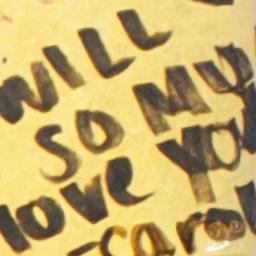 WILL
SO MU
love YOU
-caro